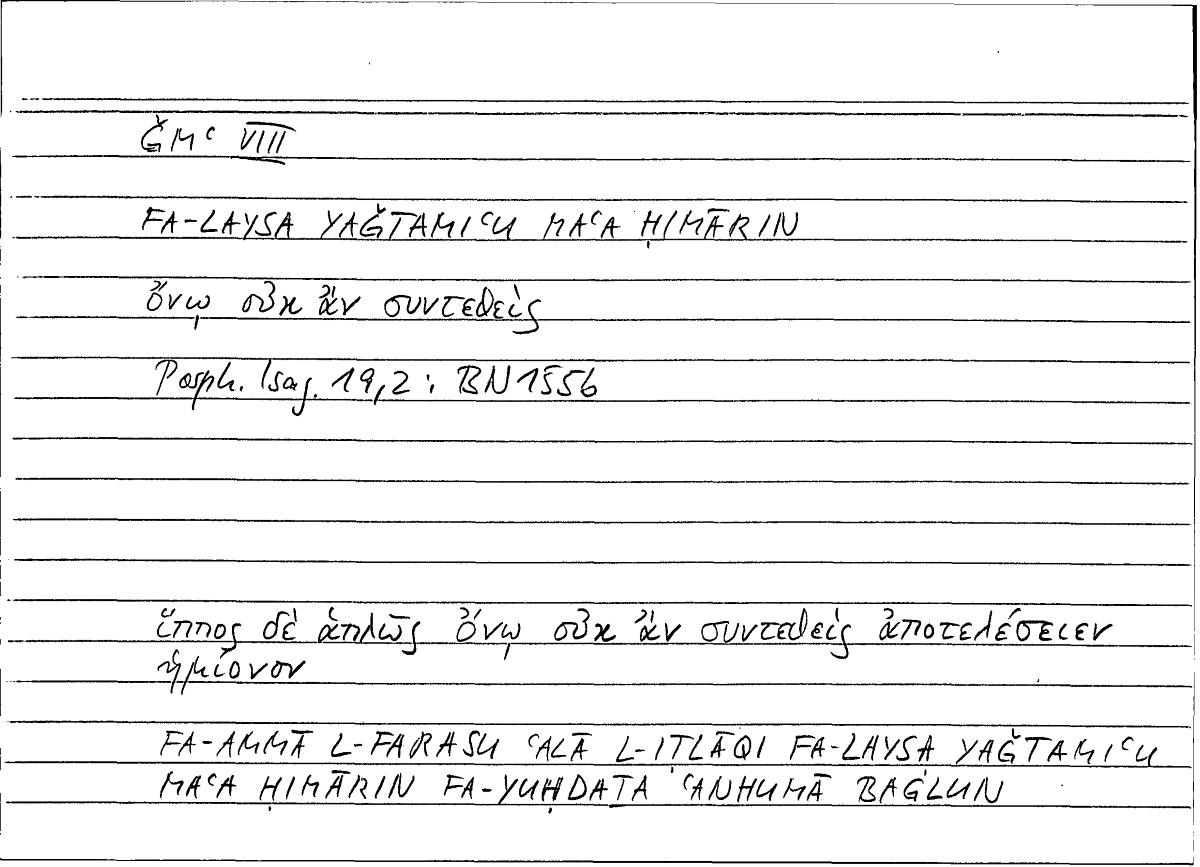 ǦMʿ VIII
FA-LAYSA YAǦTAMIʿU MAʿA ḤIMĀRIN
ὄνῳ οὐκ ἂν συντεθεὶς
Porph. Isag. 19,2; BN 155b
ἵππος δὲ ἁπλῶς ὄνῳ οὐκ ἂν συντεθεὶς ἀποτελέσειεν
ἡμίονον
FA-AMMĀ L-FARASU ʿALĀ L-IṬLĀQI FA-LAYSA YAǦTAMIʿU
MAʿA ḤIMĀRIN FA-YUḤDAṮA ʿANHUMĀ BAĠLUN